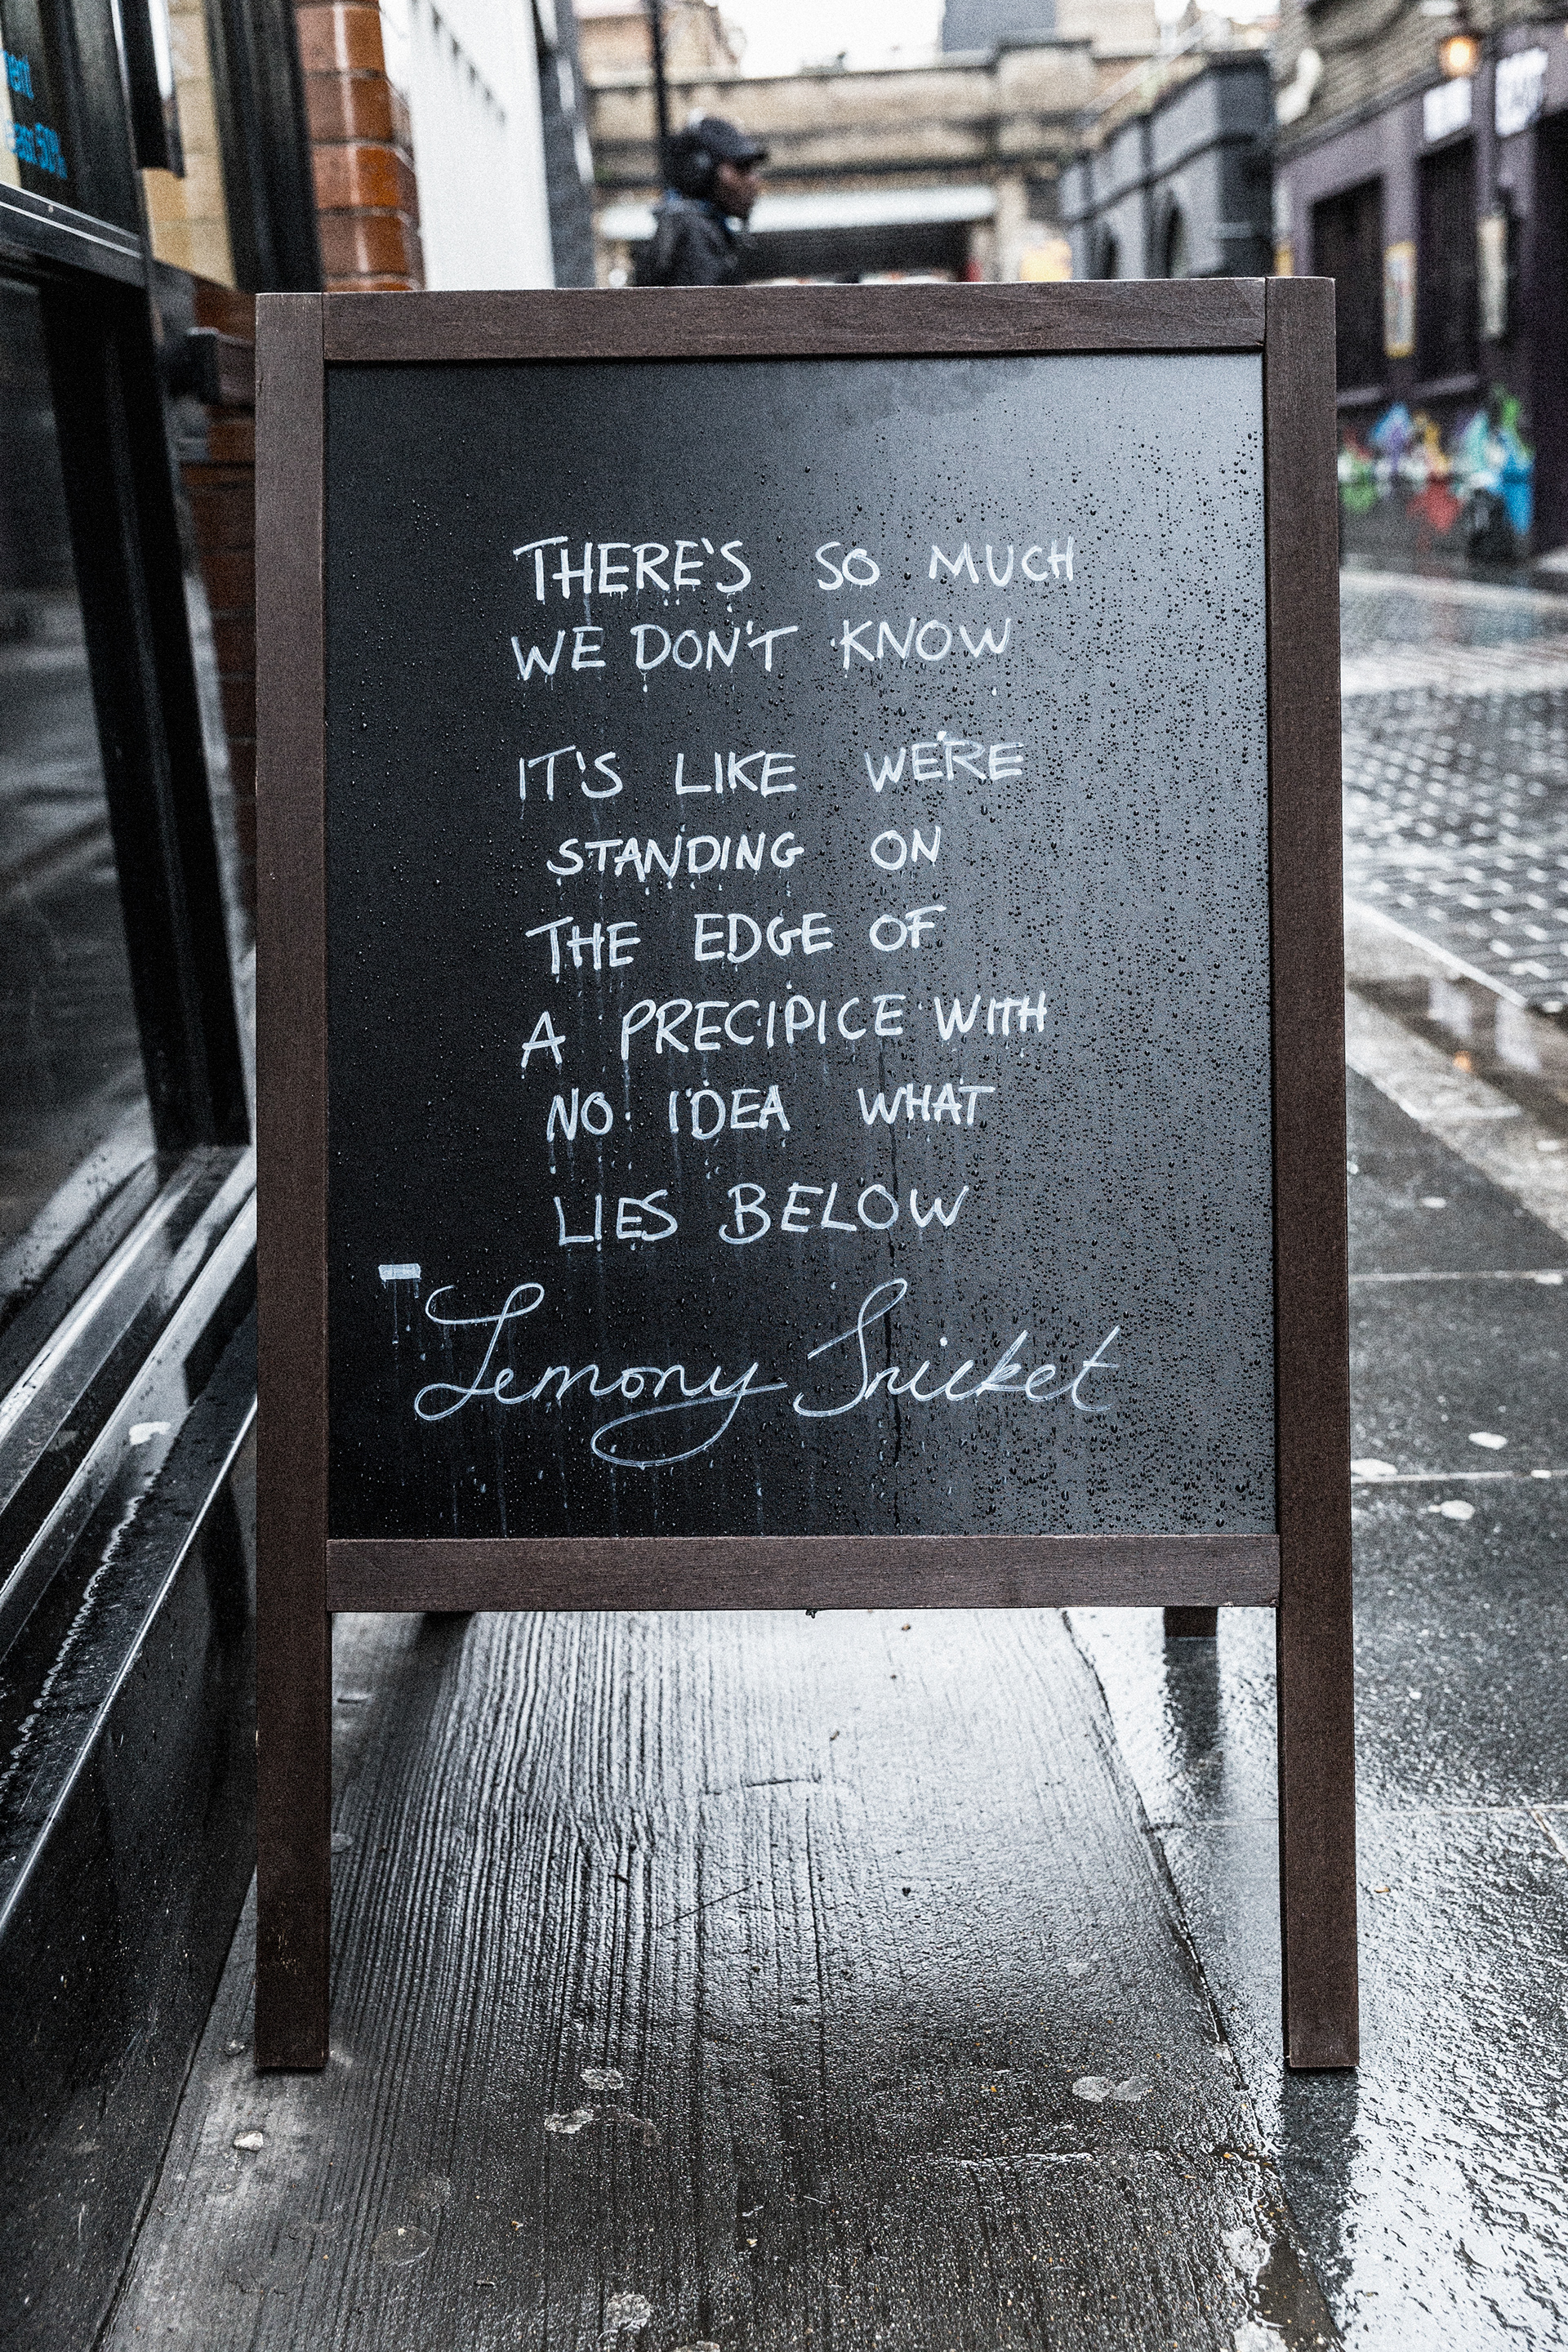 THERE'S SO MUCH
WE DON'T KNOW
IT'S LIKE WE'RE
STANDING ON
THE EDGE OF
A PRECIPICE WITH
NO IDEA WHAT
LIES BELOW
- Lemony Snicket